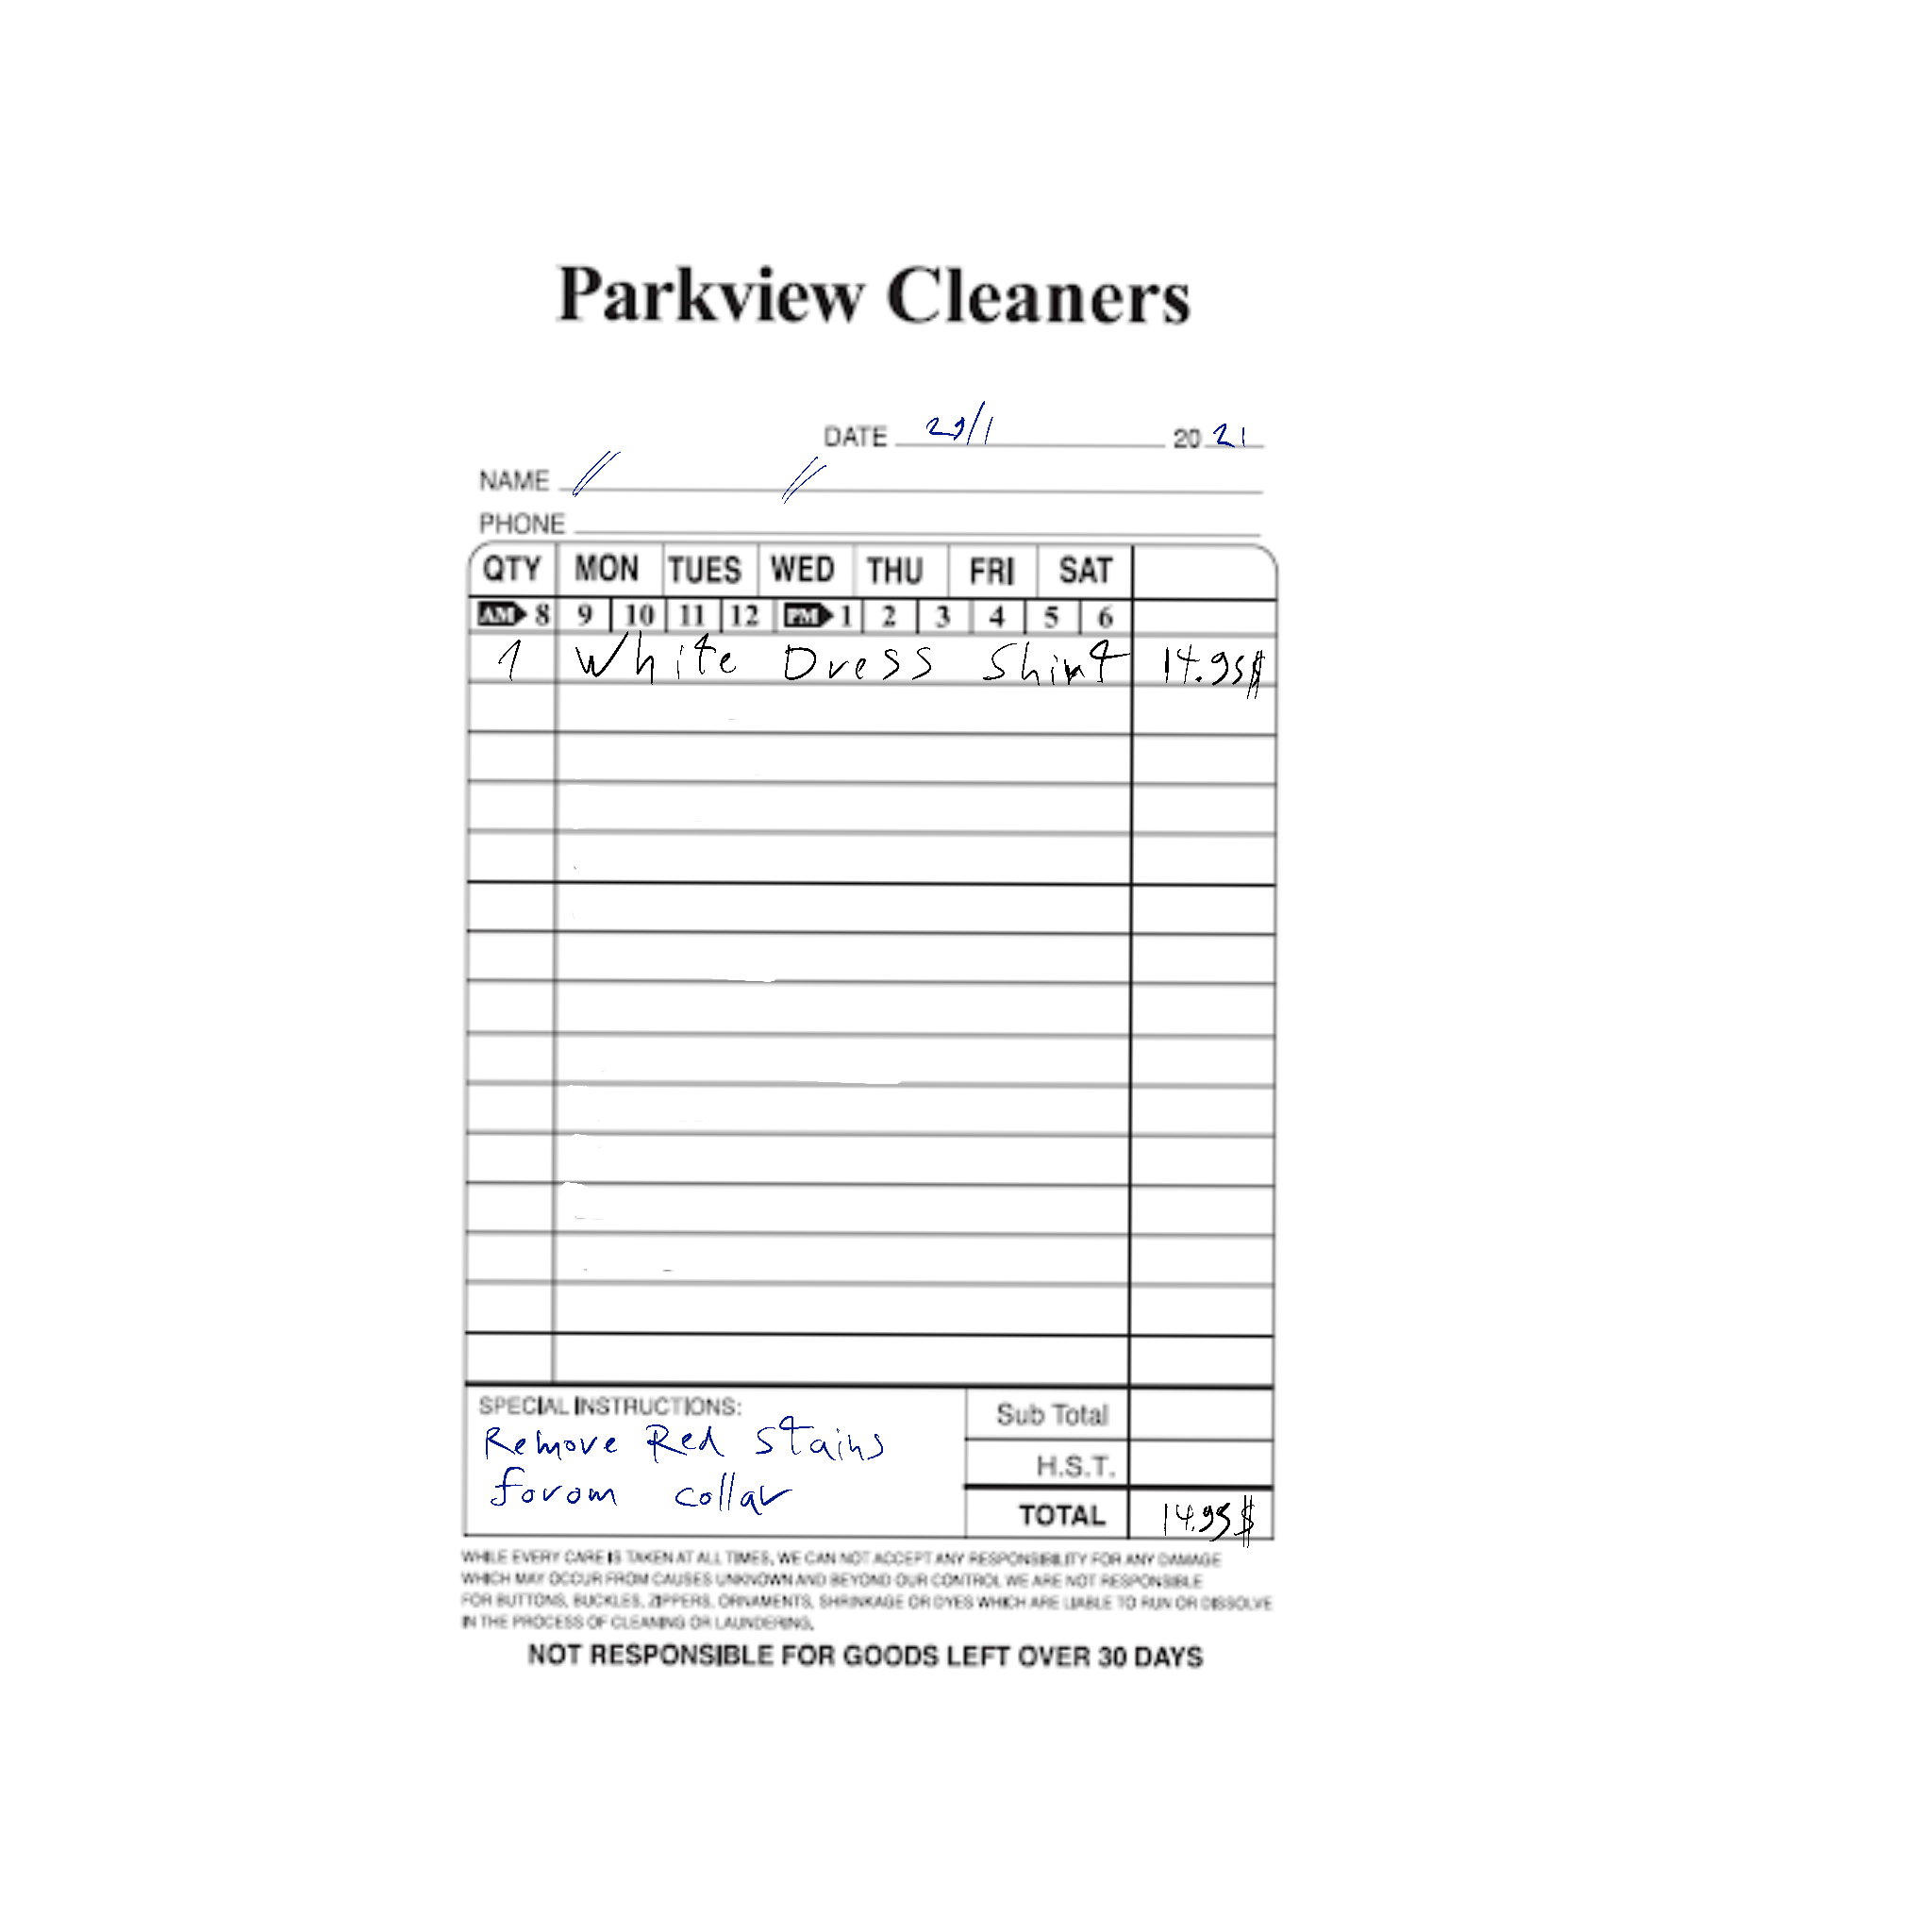 Parkview Cleaners
DATE 29/1 20 21
NAME // //
PHONE
QTY MON TUES WED THU FRI SAT
AM 8 9 10 11 12 PM 1 2 3 4 5 6
1 White Dress Shirt 14.95$
SPECIAL INSTRUCTIONS:
Remove Red stains
forom collar
Sub Total
H.S.T.
TOTAL 14.95$
WHILE EVERY CARE IS TAKEN AT ALL TIMES, WE CAN NOT ACCEPT ANY RESPONSIBILITY FOR ANY DAMAGE
WHICH MAY OCCUR FROM CAUSES UNKNOWN AND BEYOND OUR CONTROL WE ARE NOT RESPONSIBLE
FOR BUTTONS, BUCKLES, ZIPPERS, ORNAMENTS, SHRINKAGE OR DYES WHICH ARE LIABLE TO RUN OR DISSOLVE
IN THE PROCESS OF CLEANING OR LAUNDERING.
NOT RESPONSIBLE FOR GOODS LEFT OVER 30 DAYS